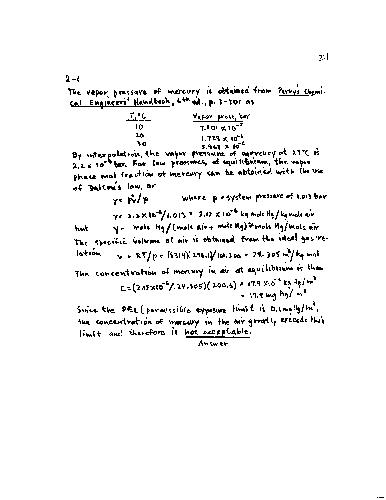 2-1
2-1
The vapor pressure of mercury is obtained from Perry's Chemi-
cal Engineers' Handbook, 6th ed., p. 3-301 as
T, °C Vapor press., bar
10
20 1.729 x 10⁻⁶
30 3.968 x 10⁻⁶
By interpolation, the vapor pressure of mercury at 23°C is
2.2 x 10⁻⁶ bar. For low pressures, at equilibrium, the vapor
phase mol fraction of mercury can be obtained with the use
of Dalton's law, or
y = p̂v/p where p = system pressure of 1.013 bar
y = 2.2x10⁻⁶/1.013 = 2.17 x 10⁻⁶ kg mole Hg/kg mole air
but y = mole Hg/(mole air + mole Hg) ≅ mole Hg/mole air
The specific volume of air is obtained from the ideal gas re-
lation v = RT/p = (8314)(296.1)/101,300 = 24.305 m³/kg mol
The concentration of mercury in air at equilibrium is then
C = (2.17x10⁻⁶/24.305)(200.6) = 17.9 x 10⁻⁶ kg Hg/m³
= 17.9 mg Hg/m³
Since the PEL (permissible exposure limit is 0.1 mg Hg/m³,
the concentration of mercury in the air greatly exceeds this
limit and therefore is not acceptable.
Answer